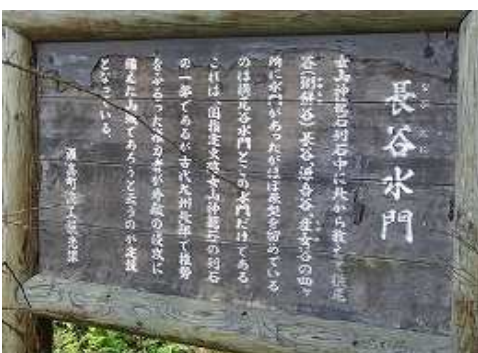 長谷水門
ながたに
女山神籠石列石中に北から数えて横尾
谷(粥餅谷)長谷、源吾谷、産女谷の四ヶ
所に水門があったがほぼ原型を留めている
のは横尾谷水門とこの水門だけである
これは、国指定史蹟・女山神籠石の列石
の一部であるが古代九州北部で権勢
をふるった が外敵の侵攻に
備えた山城であろうと云うのが定説
となっている。
瀬高町商工観光課